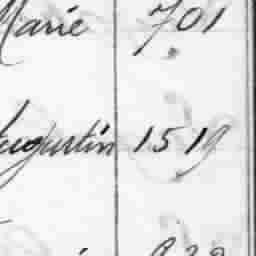 Marie 701
Augustin 1519